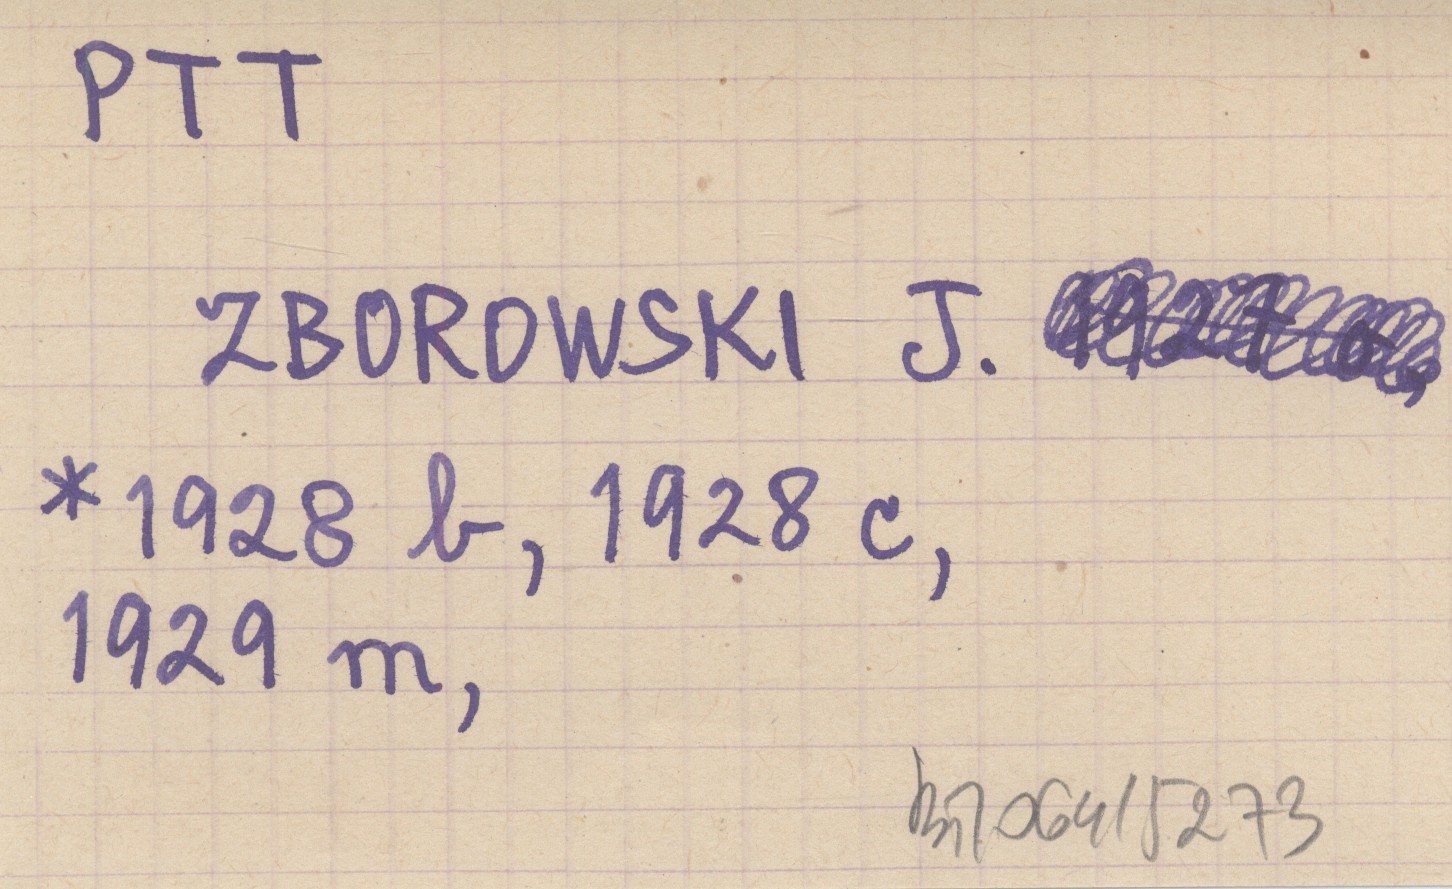 PTT
ZBOROWSKI J.
*1928 b, 1928 c,
1929 m,